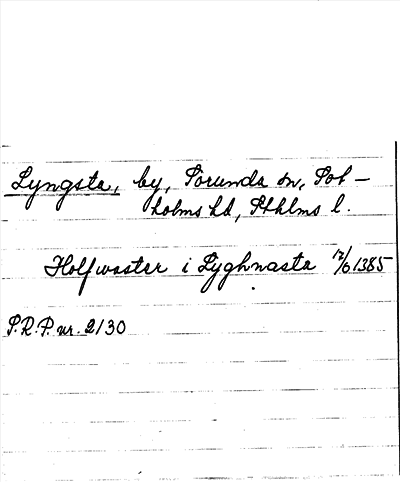 Lyngsta, by, Sorunda sn, Sot-
holms hd, Sthlms l.
Holfwaster i Lyghnasta 17/6 1385
S.R.P. nr. 2130